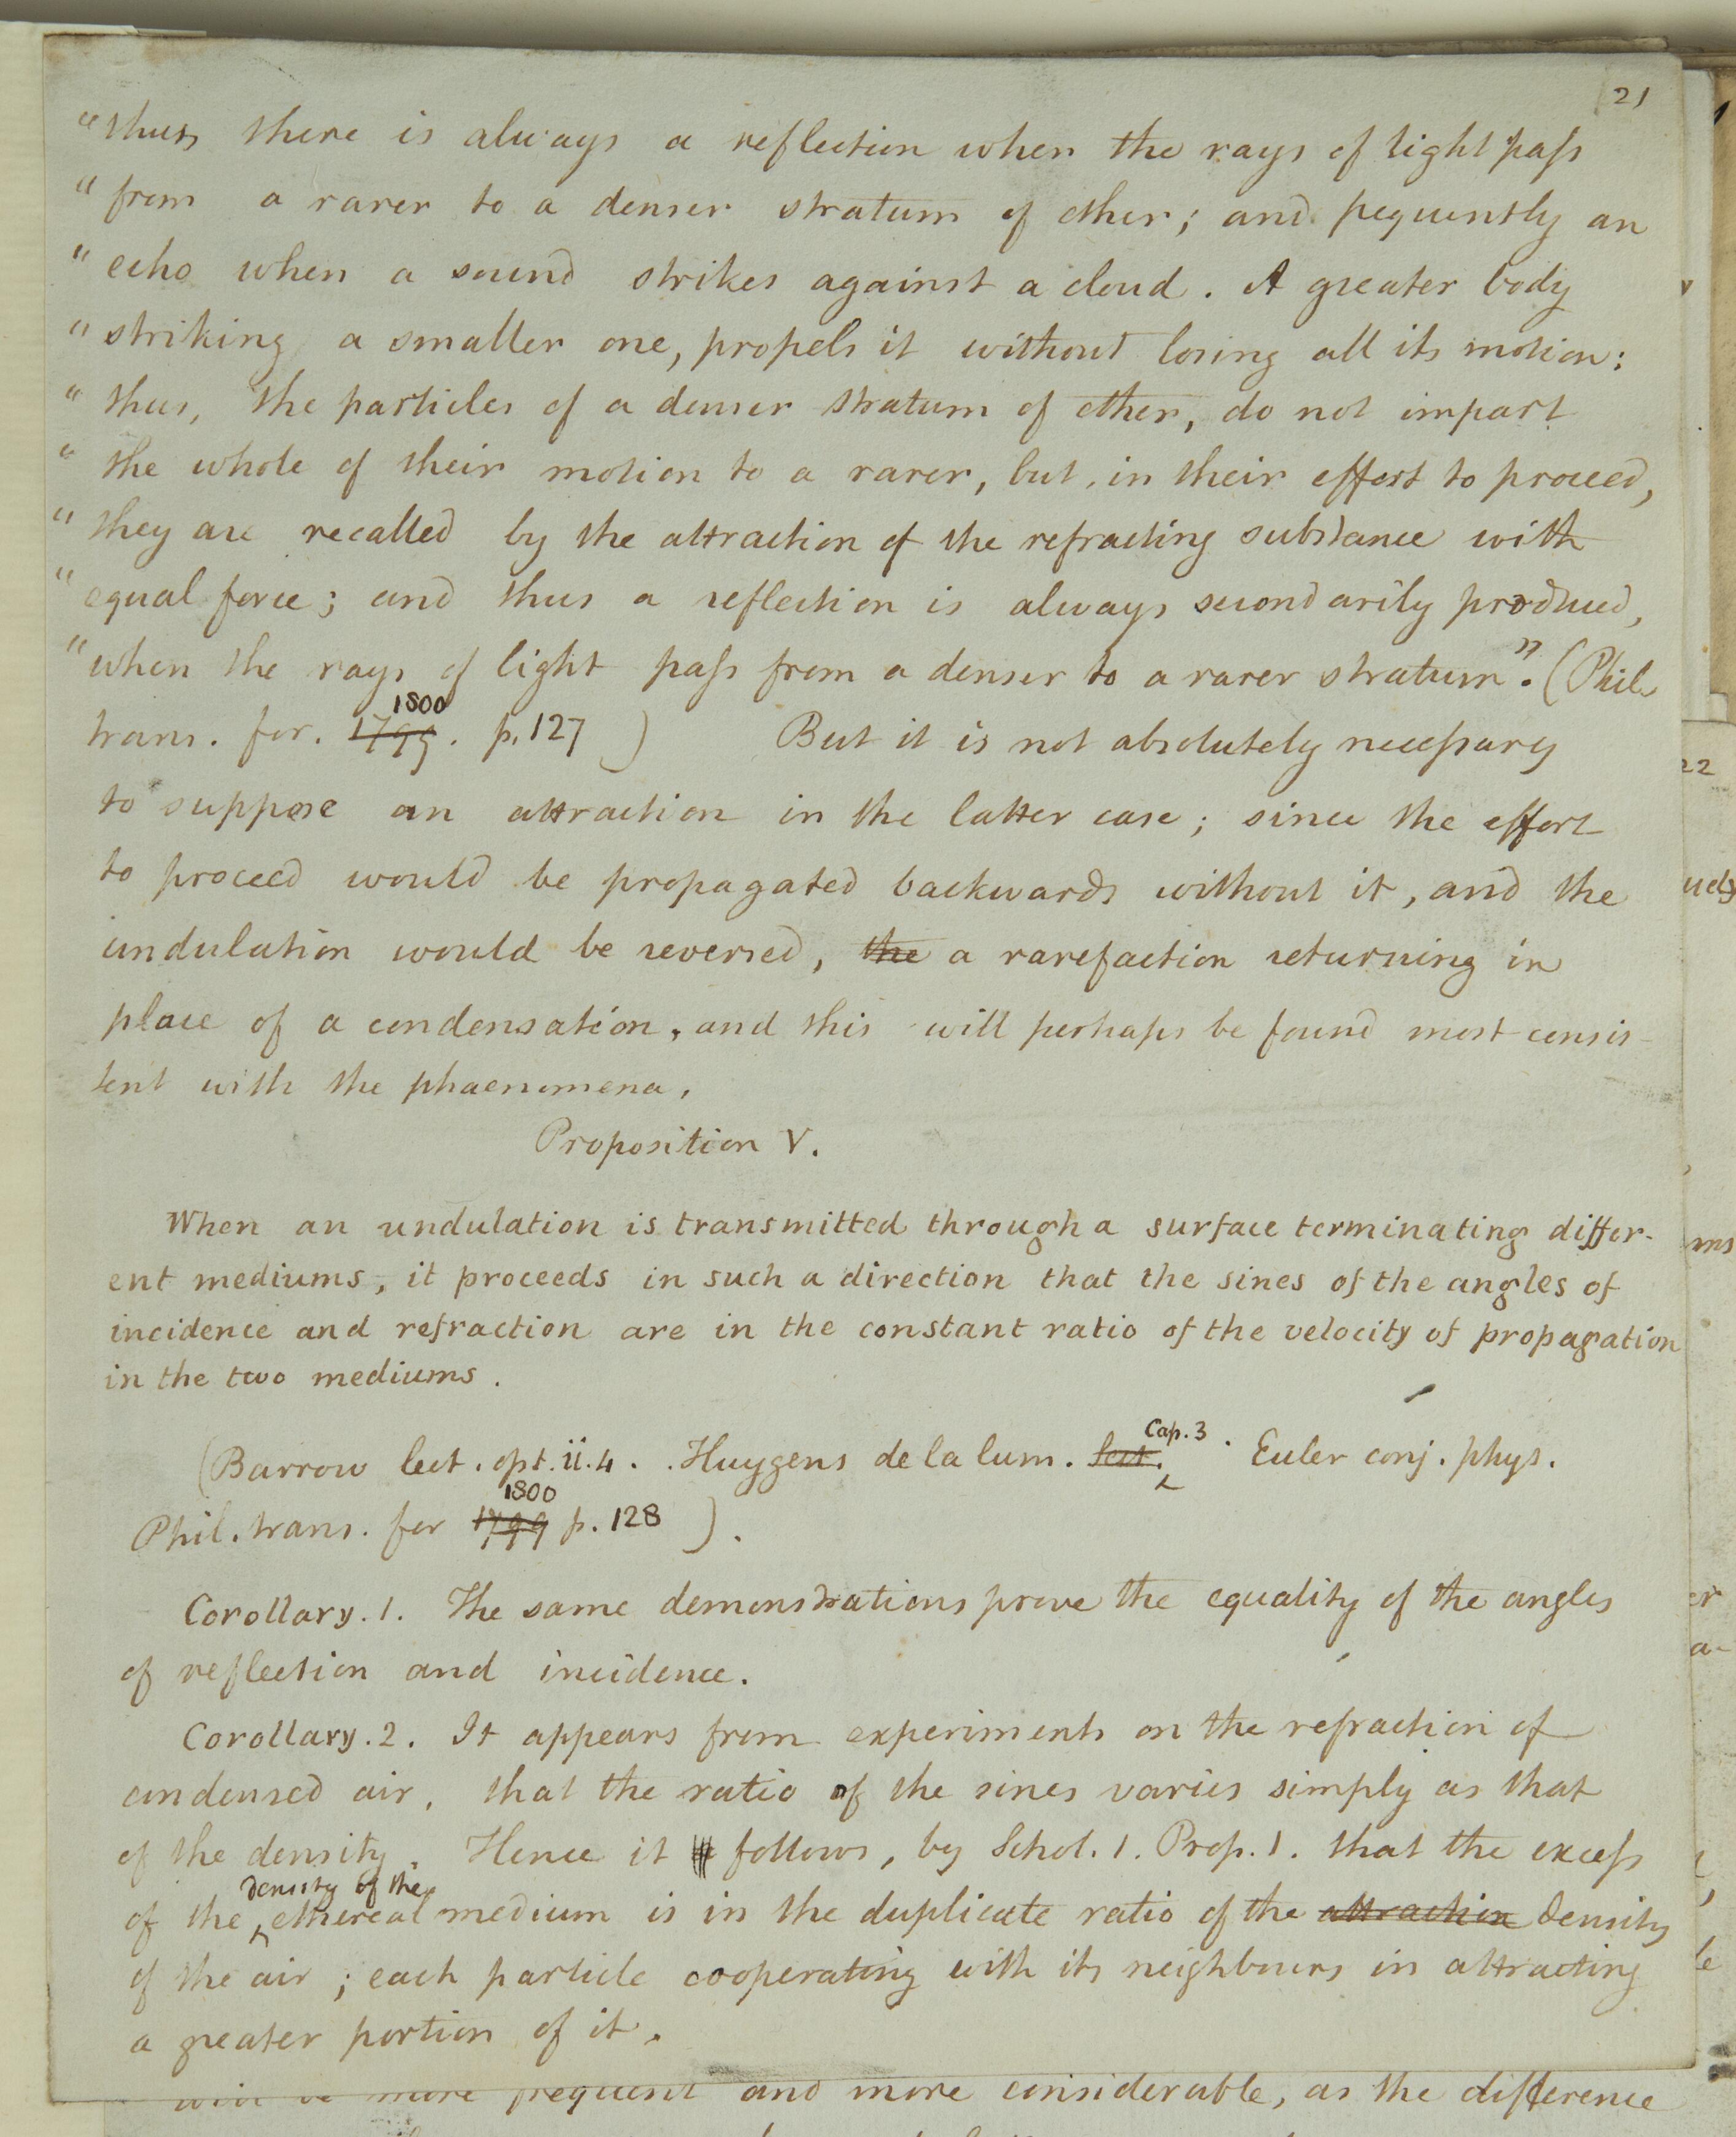 21
"thus, there is always a reflection when the rays of light pass
"from a rarer to a denser stratum of ether; and frequently an
"echo when a sound strikes against a cloud. A greater body
"striking a smaller one, propels it without losing all its motion:
"thus, the particles of a denser stratum of ether, do not impart
"the whole of their motion to a rarer, but, in their effort to proceed,
"they are recalled by the attraction of the refracting substance with
"equal force; and thus a reflection is always secondarily produced,
"when the rays of light pass from a denser to a rarer stratum". (Phil.
1800
trans. for. 1799. p. 127 ) But it is not absolutely necessary
to suppose an attraction in the latter case; since the effort
to proceed would be propagated backwards without it, and the
undulation would be reversed, the a rarefaction returning in
place of a condensation, and this will perhaps be found most consis-
tent with the phaenomena.
Proposition V.
When an undulation is transmitted through a surface terminating differ-
ent mediums, it proceeds in such a direction that the sines of the angles of
incidence and refraction are in the constant ratio of the velocity of propagation
in the two mediums.
Cap. 3
(Barrow lect. opt. ii. 4. Huygens de la lum. sect. Euler conj. phys.
1800
Phil. trans. for 1799 p. 128 ).
Corollary. 1. The same demonstrations prove the equality of the angles
of reflection and incidence.
Corollary. 2. It appears from experiments on the refraction of
condensed air, that the ratio of the sines varies simply as that
of the density. Hence it follows, by Schol. 1. Prop. 1. that the excess
density of the
of the ethereal medium is in the duplicate ratio of the attraction density
of the air; each particle cooperating with its neighbours in attracting
a greater portion of it.
more frequent and more considerable, as the difference
22